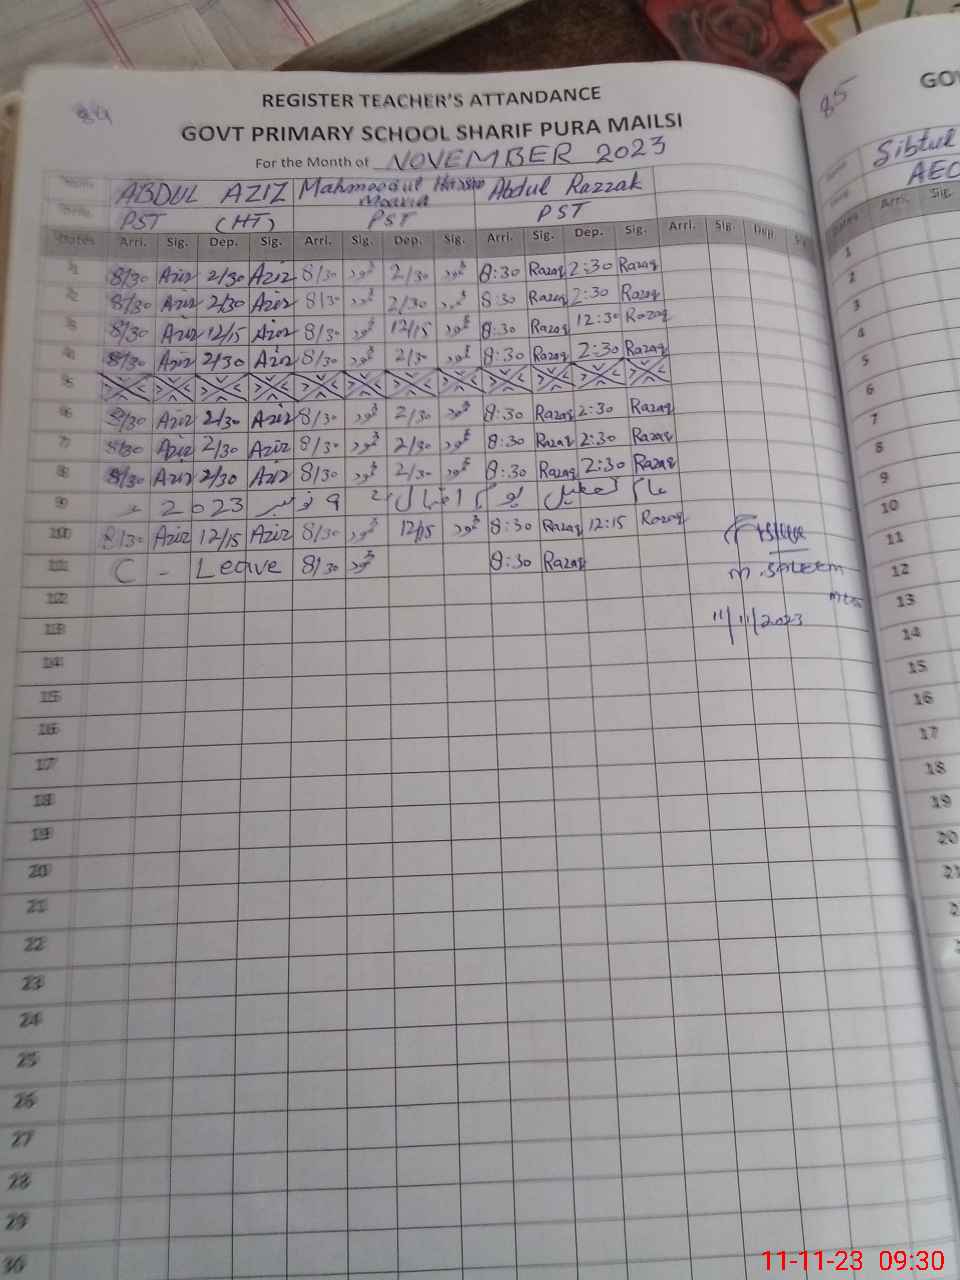 84
REGISTER TEACHER'S ATTANDANCE
GOVT PRIMARY SCHOOL SHARIF PURA MAILSI
For the Month of NOVEMBER 2023
Name ABDUL AZIZ Mahmoodul Hassan Abdul Razzak
PST (HT) PST PST
Dates Arri. Sig. Dep. Sig. Arri. Sig. Dep. Sig. Arri. Sig. Dep. Sig. Arri. Sig. Dep
1 8/30 Aziz 2/30 Aziz 8/30 2/30 8:30 Razaq 2:30 Razaq
2 8/30 Aziz 2/30 Aziz 8/30 2/30 8:30 Razaq 2:30 Razaq
3 8/30 Aziz 12/15 Aziz 8/30 12/15 8:30 Razaq 12:30 Razaq
4 8/30 Aziz 2/30 Aziz 8/30 2/30 8:30 Razaq 2:30 Razaq
5
6 8/30 Aziz 2/30 Aziz 8/30 2/30 8:30 Razaq 2:30 Razaq
7 8/30 Aziz 2/30 Aziz 8/30 2/30 8:30 Razaq 2:30 Razaq
8 8/30 Aziz 2/30 Aziz 8/30 2/30 8:30 Razaq 2:30 Razaq
9 عام تعطیل یوم اقبال 9 نومبر 2023
10 8/30 Aziz 12/15 Aziz 8/30 12/15 8:30 Razaq 12:15 Razaq
11 C - Leave 8/30 8:30 Razaq
M. Saleem
11/11/2023
12
13
14
15
16
17
18
19
20
21
22
23
24
25
26
27
28
29
30
85
GOV
Sibtul
AEO
Dates Arri. Sig.
1
2
3
4
5
6
7
8
9
10
11
12
13
14
15
16
17
18
19
20
21
11-11-23 09:30